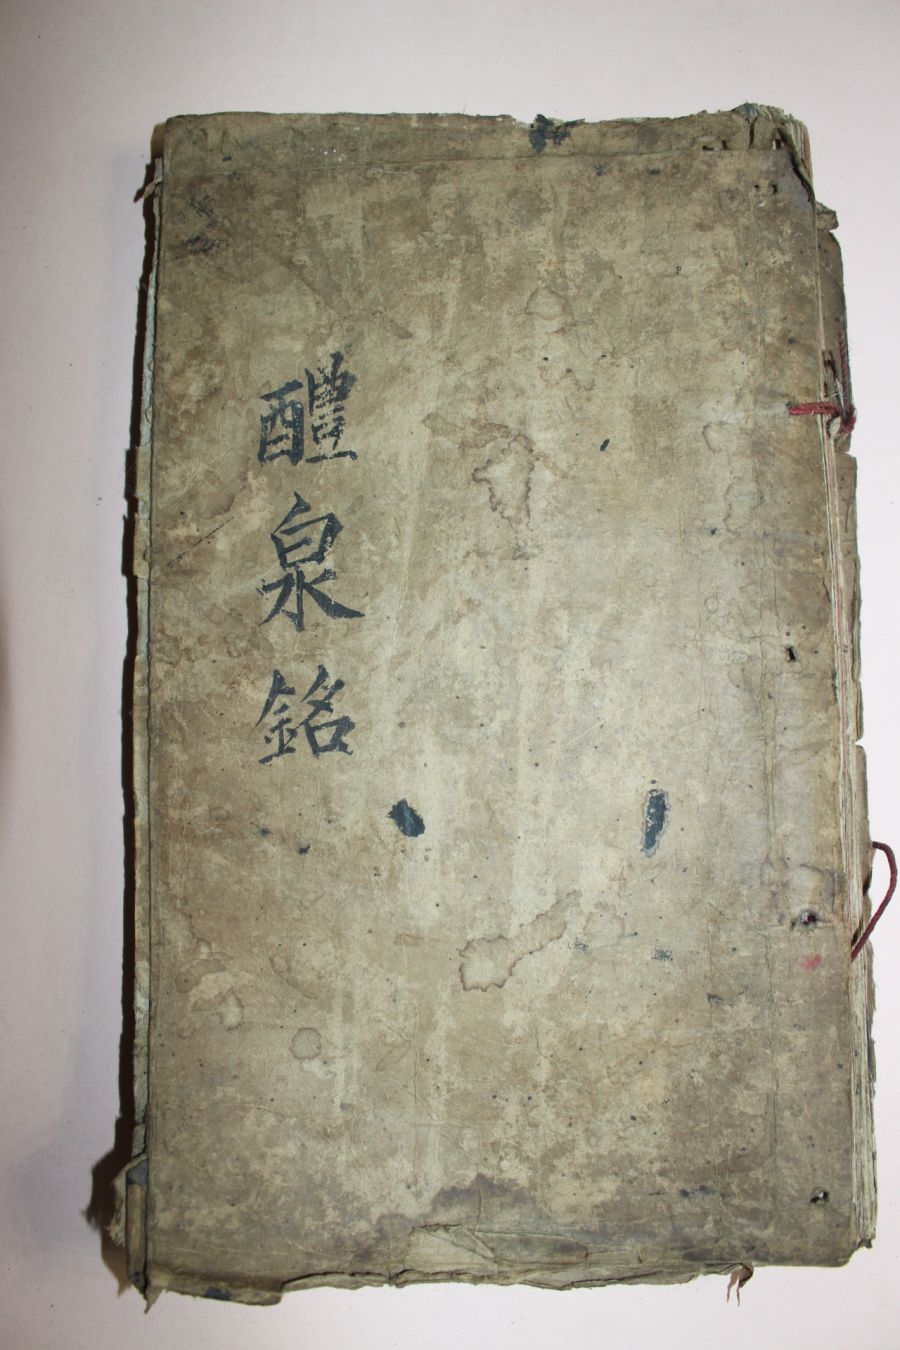 醴泉銘